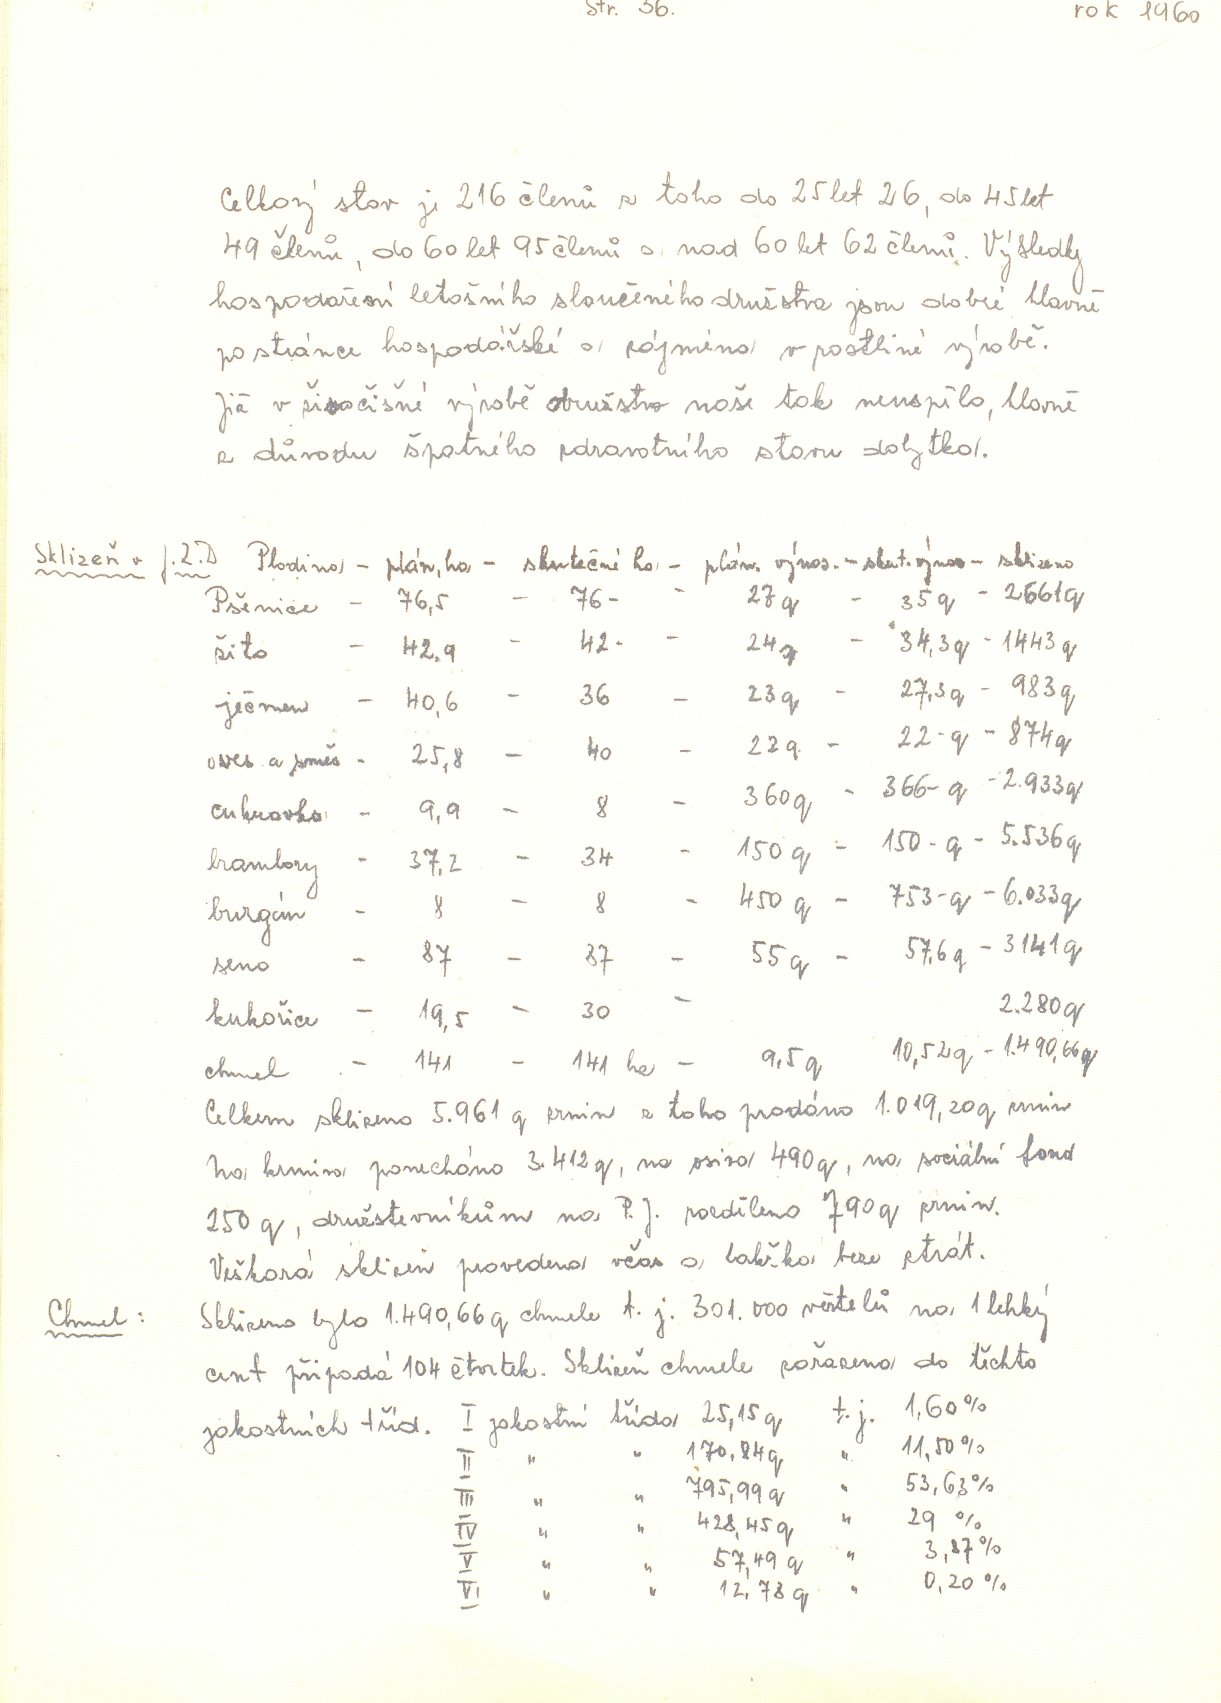 Str. 36. rok 1960
Celkový stav je 216 členů z toho do 25 let 26, do 45 let
49 členů, do 60 let 95 členů a nad 60 let 62 členů. Výsledky
hospodaření letošního sloučeného družstva jsou dobré hlavně
po stránce hospodářské a zejména v rostliné výrobě.
Již v živočišné výrobě družstvo naše tak neuspělo, hlavně
z důvodu špatného zdravotního stavu dobytka.
Sklizeň v J.Z.D Plodina - plán, ha - skutečné ha - plán. výnos. - skut. výnos - sklizeno
Pšenice - 76,5 - 76 - - 27 q - 35 q - 2661 q
žito - 42.9 - 42 - - 24 q - 34,3 q - 1443 q
ječmen - 40,6 - 36 - 23 q - 27,3 q - 983 q
oves a směs - 25,8 - 40 - 22 q - 22 - q - 874 q
cukrovka - 9,9 - 8 - 360 q - 366 - q - 2.933 q
brambory - 37,2 - 34 - 150 q - 150 - q - 5.536 q
burgán - 8 - 8 - 450 q - 753 - q - 6.033 q
seno - 87 - 87 - 55 q - 57,6 q - 3141 q
kukořice - 19,5 - 30 - 2.280 q
chmel - 141 - 141 ha - 9,5 q 10,52 q - 1.490,66 q
Celkem sklizeno 5.961 q zrnin z toho prodáno 1.019,20 q zrnin
na krmiva ponecháno 3.412 q, na osiva 490 q, na sociální fond
250 q, družstevníkům na P.J. rozdíleno 790 q zrnin.
Veškará sklizeň provedena včas a takřka beze ztrát.
Chmel: Sklizeno bylo 1.490,66 q chmele t. j. 301.000 věrtelů na 1 lehký
cent připadá 104 čtvrtek. Sklizeň chmele zařazena do těchto
jakostních tříd. I jakostní třída 25,15 q t. j. 1,60 %
II " " 170,84 q " 11,50 %
III " " 795,99 q " 53,63 %
IV " " 428,45 q " 29 %
V " " 57,49 q " 3,87 %
VI " " 12,78 q " 0,20 %